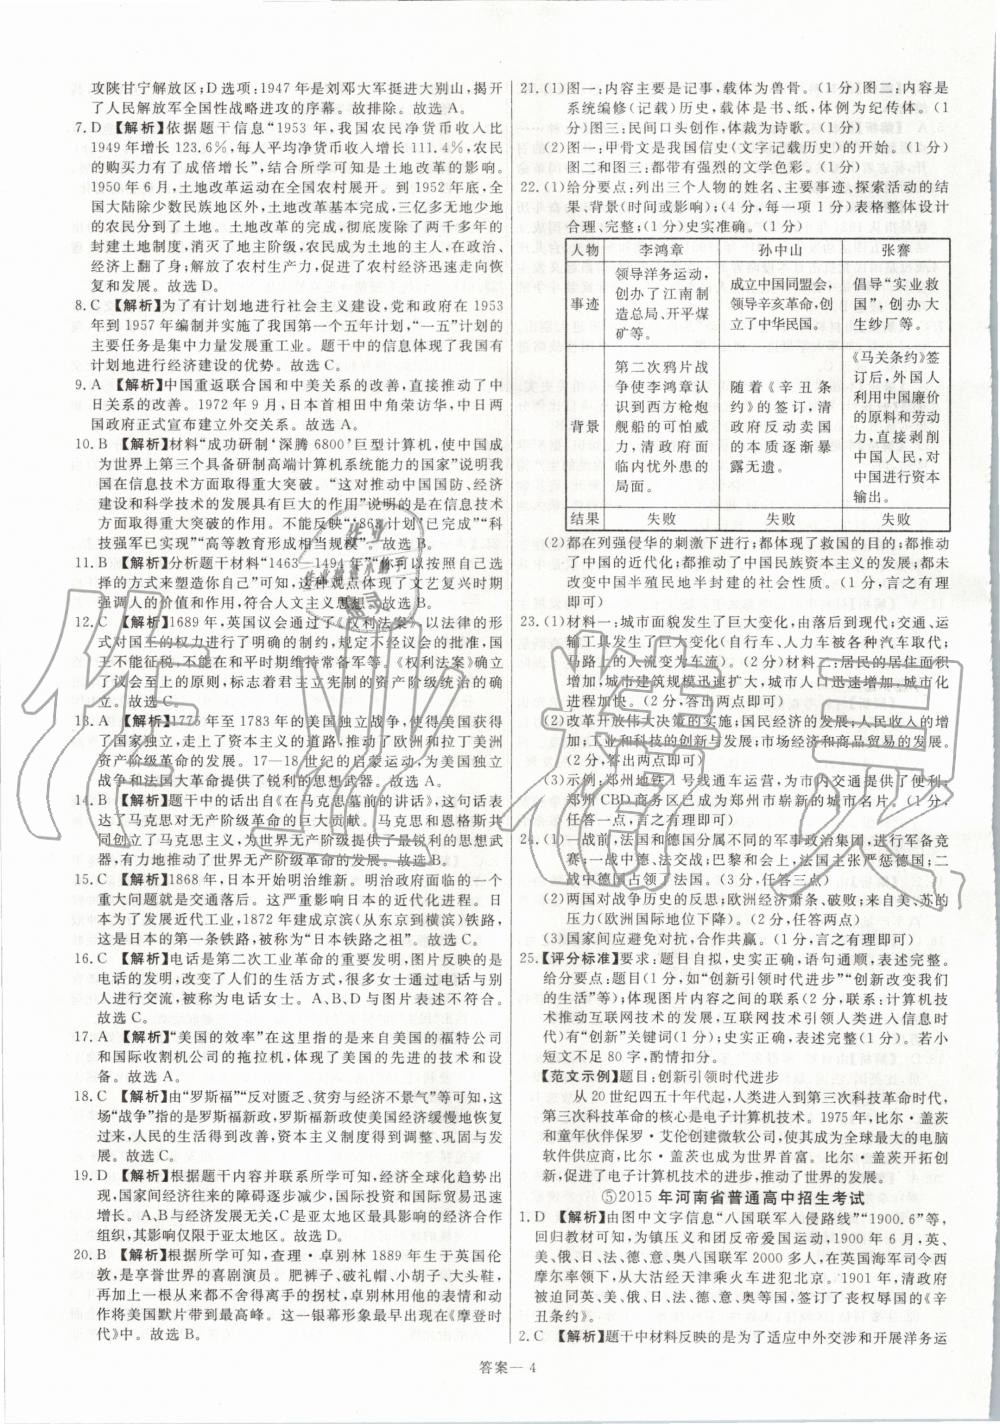 攻陕甘宁解放区;D选项:1947年是刘邓大军挺进大别山,揭开
了人民解放军全国性战略进攻的序幕。故排除。故选A。
7. D 【解析】依据题干信息“1953 年,我国农民净货币收入比
1949 年增长 123.6%,每人平均净货币收入增长 111.4%,农民
的购买力有了成倍增长”,结合所学可知是土地改革的影响。
1950 年 6 月,土地改革运动在全国农村展开。到 1952 年底,全
国大陆除少数民族地区外,土地改革基本完成,三亿多无地少地
的农民分到了土地。土地改革的完成,彻底废除了两千多年的
封建土地制度,消灭了地主阶级,农民成为土地的主人,在政治、
经济上翻了身;解放了农村生产力,促进了农村经济迅速走向恢
复和发展。故选D。
8. C 【解析】为了有计划地进行社会主义建设,党和政府在 1953
年到 1957 年编制并实施了我国第一个五年计划,“一五”计划的
主要任务是集中力量发展重工业。题干中的信息体现了我国有
计划地进行经济建设的优势。故选 C。
9. A 【解析】中国重返联合国和中美关系的改善,直接推动了中
日关系的改善。1972 年 9 月,日本首相田中角荣访华,中日两
国政府正式宣布建立外交关系。故选A。
10. B 【解析】材料“成功研制‘深腾 6800’巨型计算机,使中国成
为世界上第三个具备研制高端计算机系统能力的国家”说明我
国在信息技术方面取得重大突破。“这对推动中国国防、经济
建设和科学技术的发展具有巨大的作用”说明的是在信息技术
方面取得重大突破的作用。不能反映“863 计划”已完成”“科
技强军已实现”“高等教育形成相当规模”。故选B。
11. B 【解析】分析题干材料“1463—1494 年”“你可以按照自己选
择的方式来塑造你自己”可知,这种观点体现了文艺复兴时期
强调人的价值和作用,符合人文主义思想。故选B。
12. C 【解析】1689 年,英国议会通过了《权利法案》,以法律的形
式对国王的权力进行了明确的制约,规定不经议会的批准,国
王不能征税,不能在和平时期维持常备军等。《权利法案》确立
了议会至上的原则,标志着君主立宪制的资产阶级统治的确
立。故选C。
13. A 【解析】1775 年至 1783 年的美国独立战争,使得美国获得
了国家独立,走上了资本主义的道路,推动了欧洲和拉丁美洲
资产阶级革命的发展。17—18 世纪的启蒙运动,为美国独立
战争和法国大革命提供了锐利的思想武器。故选A。
14. B 【解析】题干中的话出自《在马克思墓前的讲话》,这句话表
达了马克思对无产阶级革命的巨大贡献。马克思和恩格斯共
同创立了马克思主义,为世界无产阶级提供了最锐利的思想武
器,有力地推动了世界无产阶级革命的发展。故选B。
15. C 【解析】1868 年,日本开始明治维新。明治政府面临的一个
重大问题就是交通落后。这严重影响日本的近代化进程。日
本为了发展近代工业,1872 年建成京滨(从东京到横滨)铁路,
这是日本的第一条铁路,被称为“日本铁路之祖”。故选C。
16. C 【解析】电话是第二次工业革命的重要发明,图片反映的是
电话的发明,改变了人们的生活方式,很多女士通过电话与别
人进行交流,被称为电话女士。A、B、D与图片表述不符合。
故选C。
17. A 【解析】“美国的效率”在这里指的是来自美国的福特公司
和国际收割机公司的拖拉机,体现了美国的先进的技术和设
备。故选A。
18. C 【解析】由“罗斯福”“反对匮乏、贫穷与经济不景气”等可知,这
场“战争”指的是罗斯福新政,罗斯福新政使美国经济缓慢地恢复
过来,人民的生活得到改善,资本主义制度得到调整、巩固与发
展。故选C。
19. D 【解析】根据题干内容并联系所学可知,经济全球化趋势出
现,国家间经济往来的障碍逐步减少,投资和国际贸易迅速增
长。A、B与经济发展无关;C是亚太地区最具影响的经济合作
组织,其影响仅限于亚太地区。故选D。
20. B 【解析】根据所学可知,查理·卓别林 1889 年生于英国伦
敦,是享誉世界的喜剧演员。肥裤子、破礼帽、小胡子、大头鞋,
再加上一根从来都舍不得离手的拐杖,卓别林用他的表情和动
作将美国默片带到最高峰。这一银幕形象最早出现在《摩登时
代》中。故选B。
21. (1)图一:内容主要是记事,载体为兽骨。(1 分)图二:内容是
系统编修(记载)历史,载体是书、纸,体例为纪传体。(1
分)图三:民间口头创作,体裁为诗歌。(1分)
(2)图一:甲骨文是我国信史(文字记载历史)的开始。(1分)
图二和图三:都带有强烈的文学色彩。(1分)
22. (1)给分要点:列出三个人物的姓名、主要事迹、探索活动的结
果、背景(时间或影响);(4 分,每一项 1 分)表格整体设计
合理、完整;(1分)史实准确。(1分)
人物 李鸿章 孙中山 张謇
事迹 领导洋务运动,创办了江南制造总局、开平煤矿等。 成立中国同盟会,领导辛亥革命,创立了中华民国。 倡导“实业救国”,创办大生纱厂等。
背景 第二次鸦片战争使李鸿章认识到西方枪炮舰船的可怕威力,清政府面临内忧外患的局面。 随着《辛丑条约》的签订,清政府反动卖国的本质逐渐暴露无遗。 《马关条约》签订后,外国人利用中国廉价的原料和劳动力,直接剥削中国人民,对中国进行资本输出。
结果 失败 失败 失败
(2)都在列强侵华的刺激下进行;都体现了救国的目的;都推动
了中国的近代化;都推动了中国民族资本主义的发展;都未
改变中国半殖民地半封建的社会性质。(1分,言之有理
即可)
23. (1)材料一:城市面貌发生了巨大变化,由落后到现代;交通、运
输工具发生了巨大变化(自行车、人力车被各种汽车取代;
马路上的人流变为车流)。(2分)材料二:居民的居住面积
增加,城市建筑规模迅速扩大,城市人口迅速增加,城市化
进程加快。(2分,答出两点即可)
(2)改革开放伟大决策的实施;国民经济的发展;人民收入的增
加;工业和科技的创新与发展;市场经济和商品贸易的发展。
(2分,答出两点即可)
(3)示例:郑州地铁 1 号线通车运营,为市内交通提供了便利;
郑州 CBD 商务区已成为郑州市崭新的城市名片。(1分,
任答一点,言之有理即可)
24. (1)一战前,法国和德国分属不同的军事政治集团,进行军备竞
赛;一战中德、法交战;巴黎和会上,法国主张严惩德国;二
战中德国占领了法国。(3分,任答三点)
(2)两国对战争历史的反思;欧洲经济萧条、破败;来自美、苏的
压力(欧洲国际地位下降)。(2分,任答两点)
(3)国家间应避免对抗,合作共赢。(1分,言之有理即可)
25. 【评分标准】要求:题目自拟,史实正确,语句通顺,表述完整。
给分要点:题目(1 分,如“创新引领时代进步”“创新改变我们
的生活”等);体现图片内容之间的联系(2 分,联系:计算机技
术推动互联网技术的发展,互联网技术引领人类进入信息时
代)有“创新”关键词(1 分);史实正确,表述完整(1 分)。若小
短文不足 80 字,酌情扣分。
【范文示例】题目:创新引领时代进步
从 20 世纪四五十年代起,人类进入到第三次科技革命时代,
第三次科技革命的核心是电子计算机技术。1975 年,比尔·盖茨
和童年伙伴保罗·艾伦创建微软公司,使其成为全球最大的电脑
软件供应商,比尔·盖茨也成为世界首富。比尔·盖茨开拓创
新,促进了电子计算机技术的进步,推动了世界的发展。
⑤2015 年河南省普通高中招生考试
1. D 【解析】由图中文字信息“八国联军入侵路线”“1900.6”等,
回归教材可知,为镇压义和团反帝爱国运动,1900 年 6 月,英、
美、俄、日、法、德、意、奥八国联军 2000 多人,在英国海军司令西
摩尔率领下,从大沽经天津乘火车进犯北京。1901 年,清政府
被迫同英、美、俄、日、法、德、意、奥等国,签订了丧权辱国的《辛
丑条约》。故选D。
2. C 【解析】题干中材料反映的是为了适应中外交涉和开展洋务运
答案— 4
作业精灵